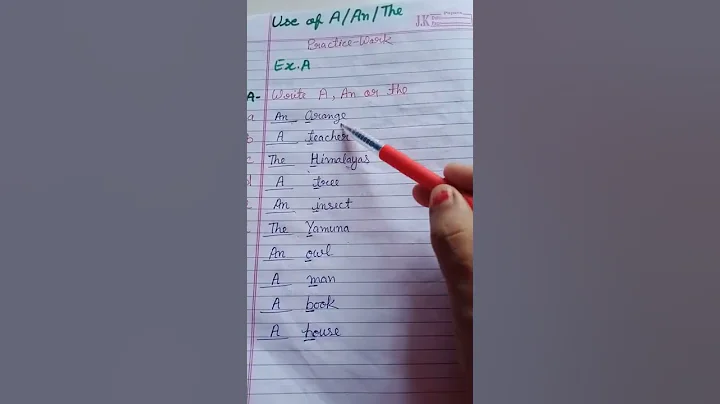 Use of A/An/The
J.K
Practice-Work
Ex.A
A- Write A, An or the
a An orange
b A teacher
c The Himalayas
d A tree
An insect
The Yamuna
An owl
A man
A book
A house